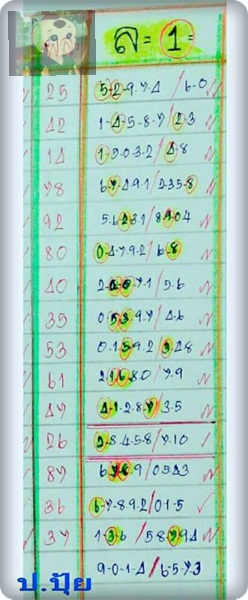 ล = 1 =
25 5-2-9-7-4 / 6-0
42 1-4-5-8-7 / 2-3
14 1-5-0-3-2 / 4-8
78 6-7-4-9-1 / 2-3-5-8
92 5-6-2-3-1 / 8-9-0-4
80 0-4-7-9-2 / 6-8
40 2-4-0-7-1 / 5-6
35 0-5-3-9-7 / 4-6
53 0-1-5-9-2 / 3-4-8
61 2-1-6-8-0 / 7-9
47 4-1-2-8-7 / 3-5
26 2-8-4-5-8 / 7-1-0
87
36 6-7-8-9-2 / 0-1-5
37 1-3-6 / 5-8-7-9-4
9-0-1-4 / 6-5-7-3
ป.ปุ้ย